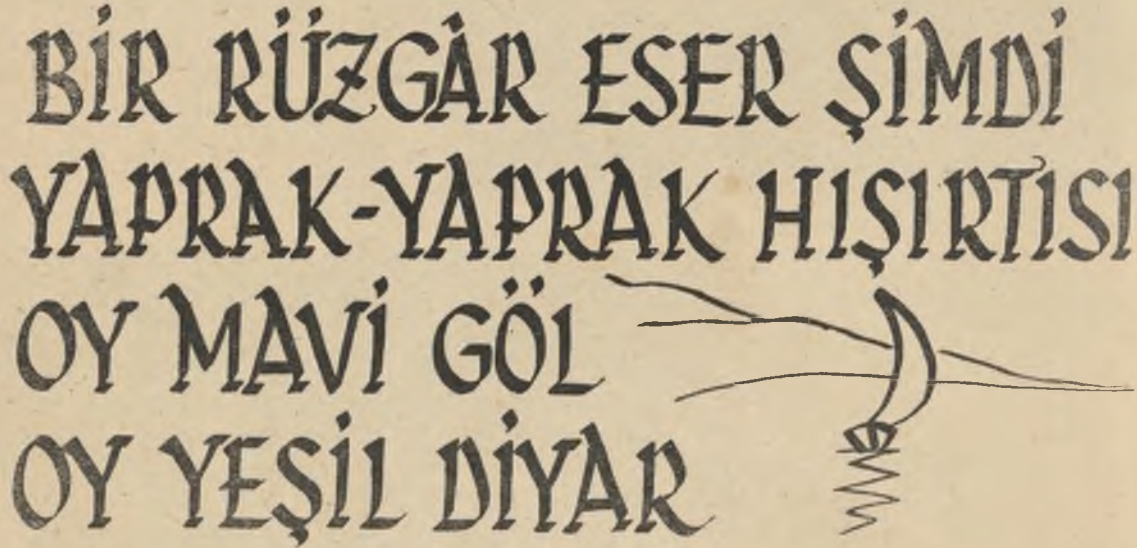 BİR RÜZGÂR ESER ŞİMDİ
YAPRAK-YAPRAK HIŞIRTISI
OY MAVİ GÖL
OY YEŞİL DİYAR